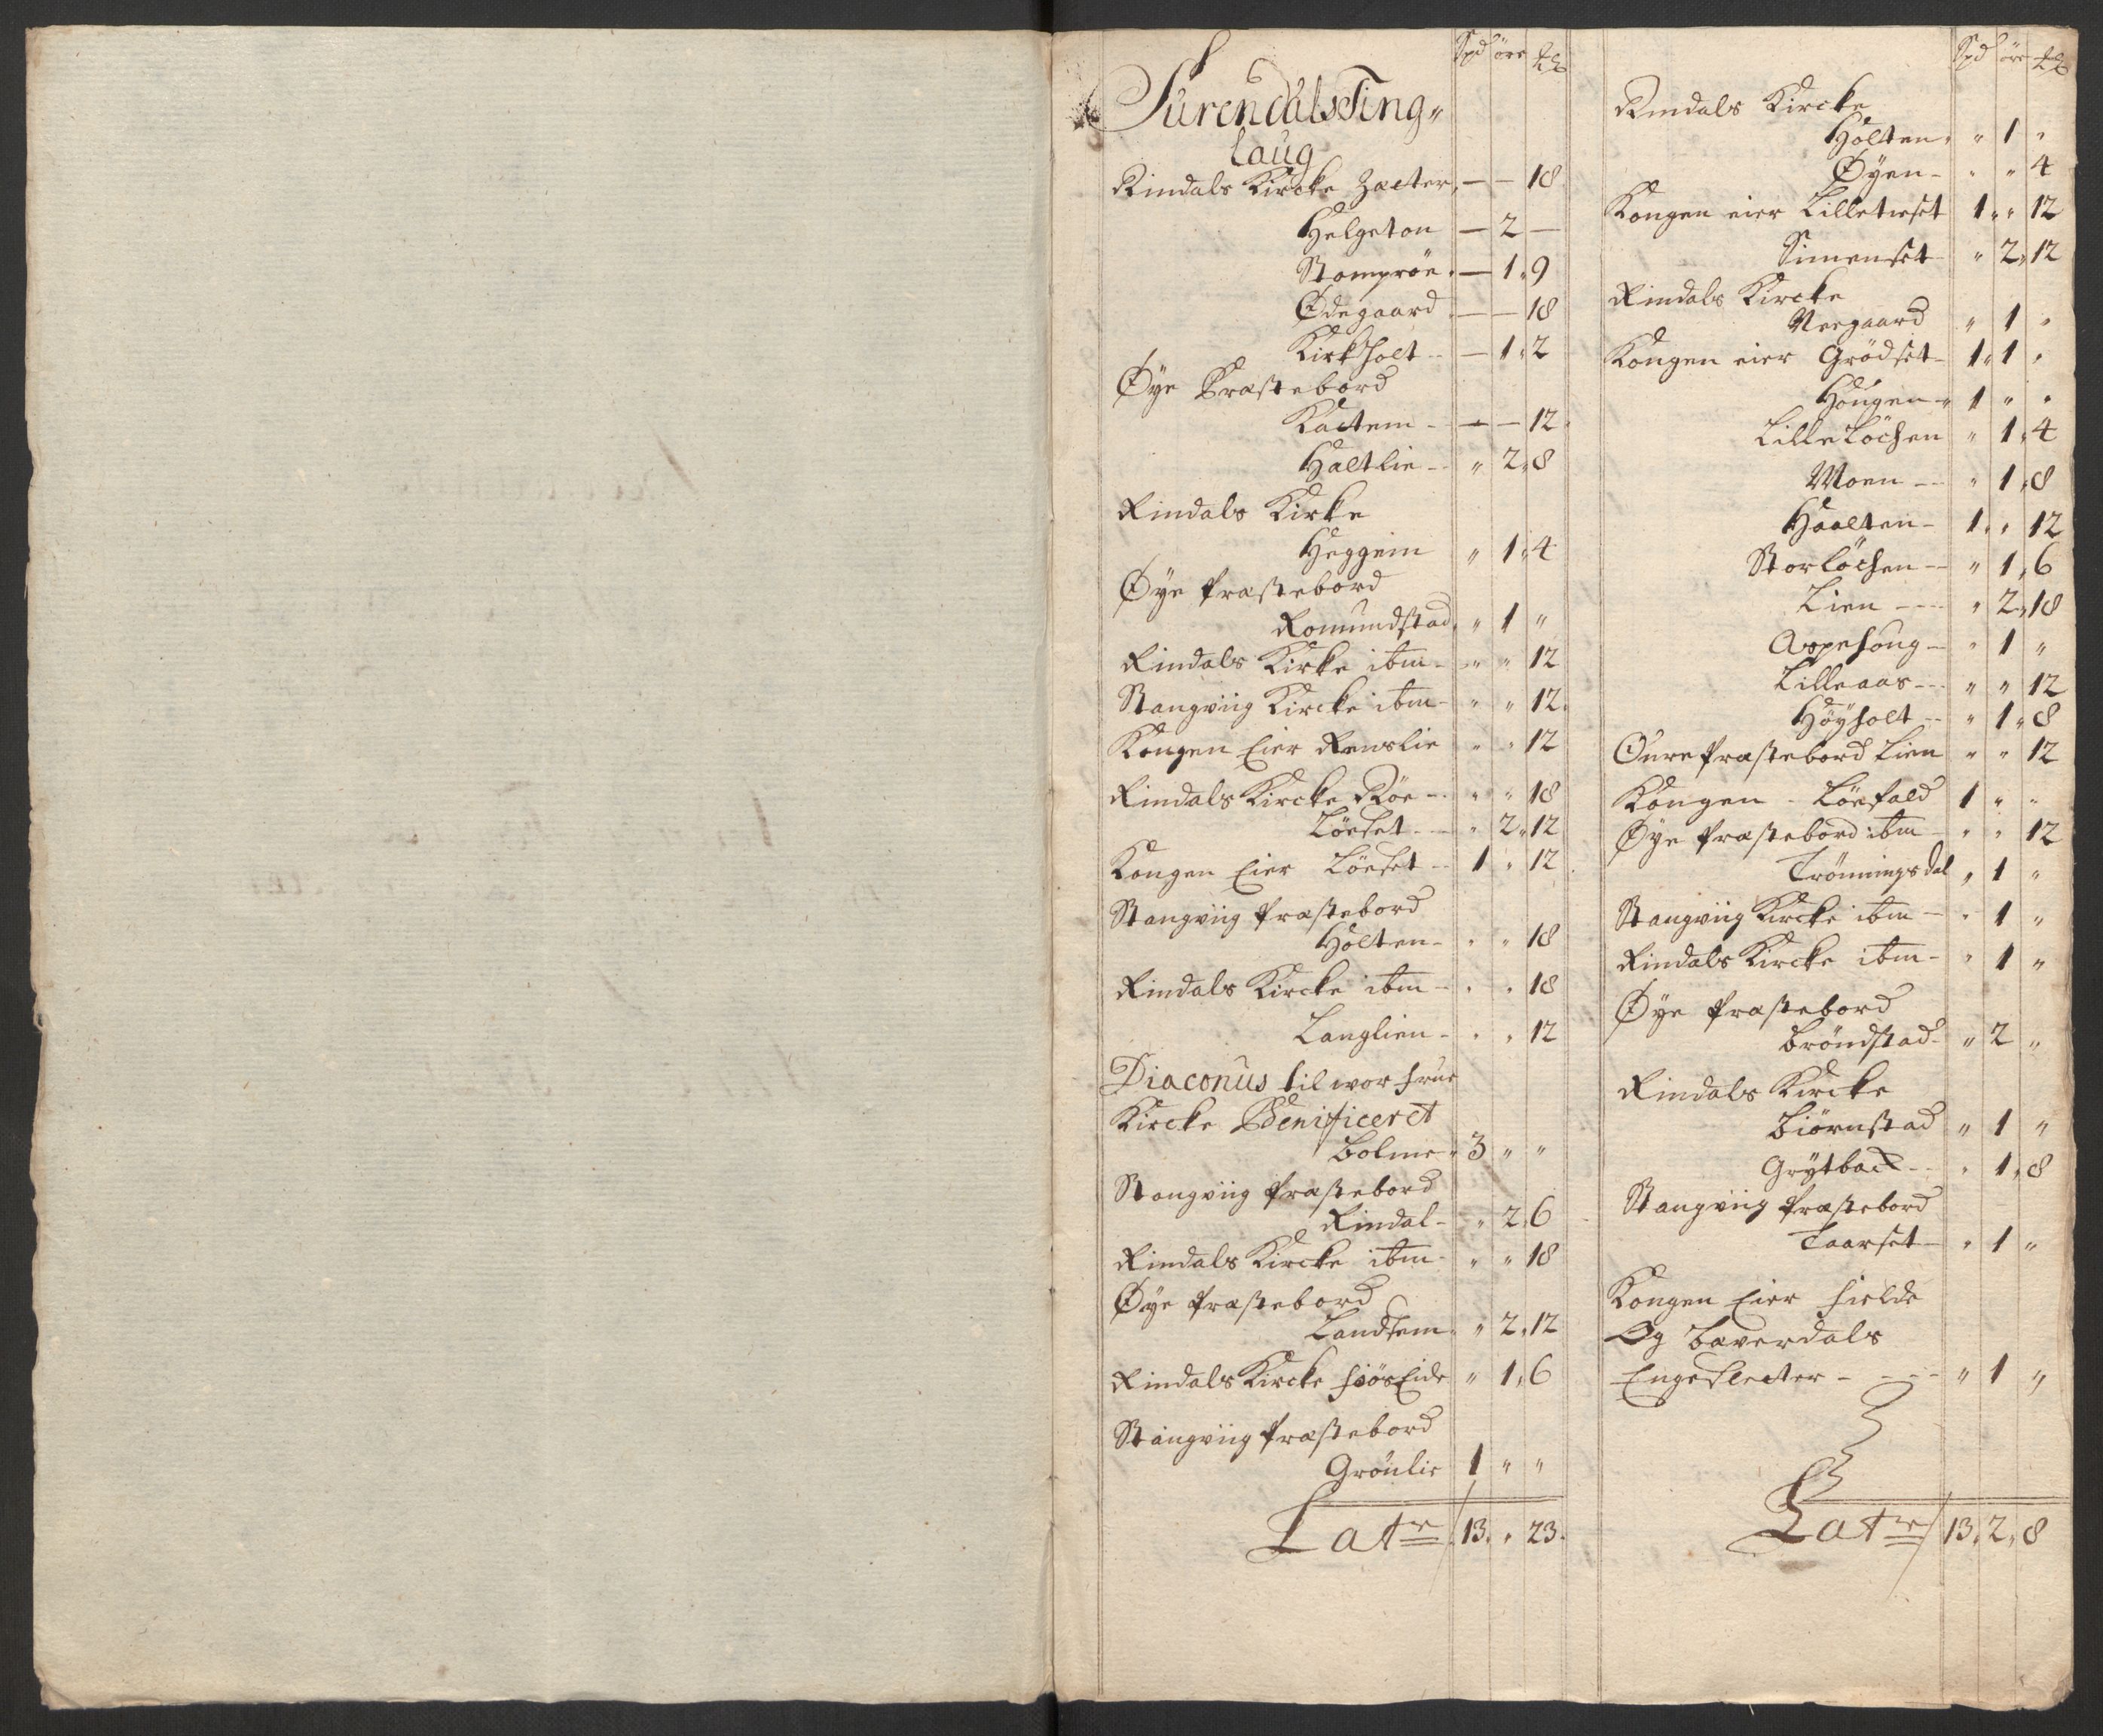 Spd öre ℔
Surendals Ting-
laug
Rindals Kircke Zæter — — 18
Helgeton — 2 —
Stompröe — 1 9
Ødegaard — — 18
Kirkholt — 1 2
Øye Præstebord
Kattem — — 12
Haltlie " 2 8
Rindals Kirke
Heggeim " 1 4
Øye Præstebord
Romundstad " 1 "
Rindals Kirke ibm " " 12
Stangviig Kircke ibm " " 12
Kongen Eier Renslie " " 12
Rindals Kircke Röe " " 18
Löeset " 2 12
Kongen Eier Löeset 1 " 12
Stangviig Præstebord
Holten " " 18
Rindals Kircke ibm " " 18
Langlien " " 12
Diaconus til wor frue
Kircke Benificeret
Bolme 3 " "
Stangviig Præstebord
Rindal " 2 6
Rindals Kircke ibm " " 18
Øye Præstebord
Landsem " 2 12
Rindals Kircke fiörEide " 1 6
Stangviig Præstebord
Grönlie 1 " "
Latr 13 " 23
Spd öre ℔
Rindals Kircke
Holten " 1 "
Øyen " " 4
Kongen eier Lilletieset 1 " 12
Simenset " 2 12
Rindals Kircke
Neegaard " 1 "
Kongen eier Grödset 1 1 "
Hougen 1 " "
Lille Löchen " 1 4
Moen " 1 8
Haalten 1 " 12
Storlöchen " 1 6
Lien " 2 18
Aspehoug " 1 "
Lilleaas " " 12
Höyholt " 1 8
Oure Præstebord Lien " " 12
Kongen - Löefald 1 " "
Øye Præstebord ibm " " 12
Trönningsdal " 1 "
Stangviig Kircke ibm " 1 "
Rindals Kircke ibm " 1 "
Øye Præstebord
Bröndstad " 2 "
Rindals Kircke
Biörnstad " 1 "
Grytback " 1 8
Stangviig Præstebord
Taarset " 1 "
Kongen Eier fielde
Og Bæverdals
Engesletter " 1 "
Latr 13 2 8